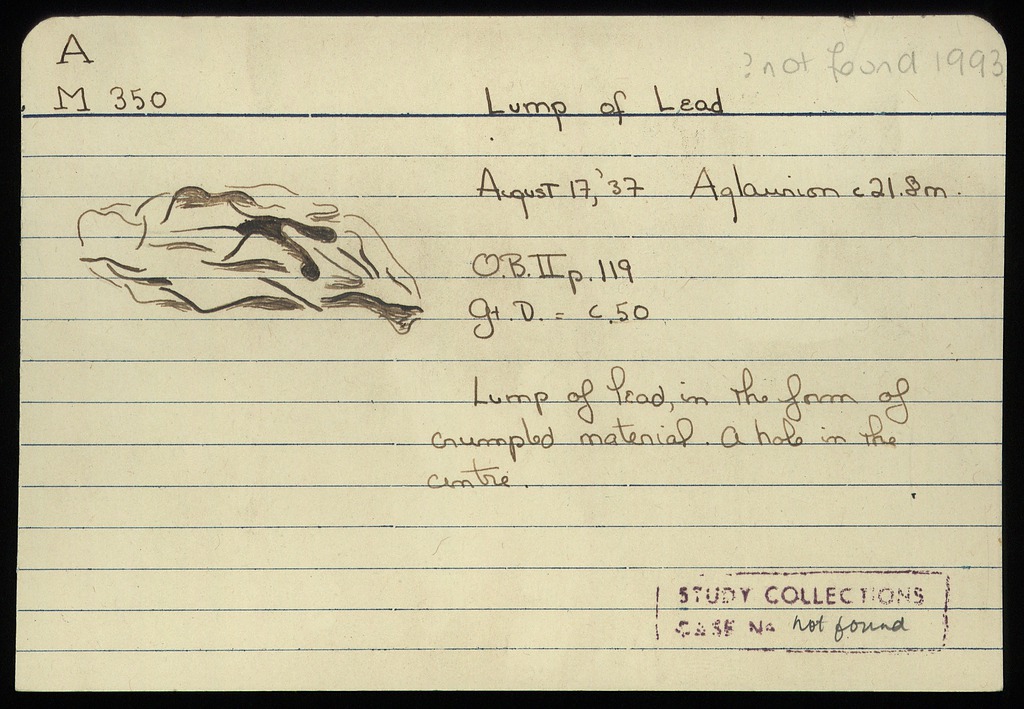 A
?not found 1993
M 350
Lump of Lead
August 17,'37 Aglaurion c21.8m.
O.B.II p.119
Gt. D. = c.50
Lump of lead, in the form of
crumpled material. A hole in the
centre.
STUDY COLLECTIONS
CASE No not found